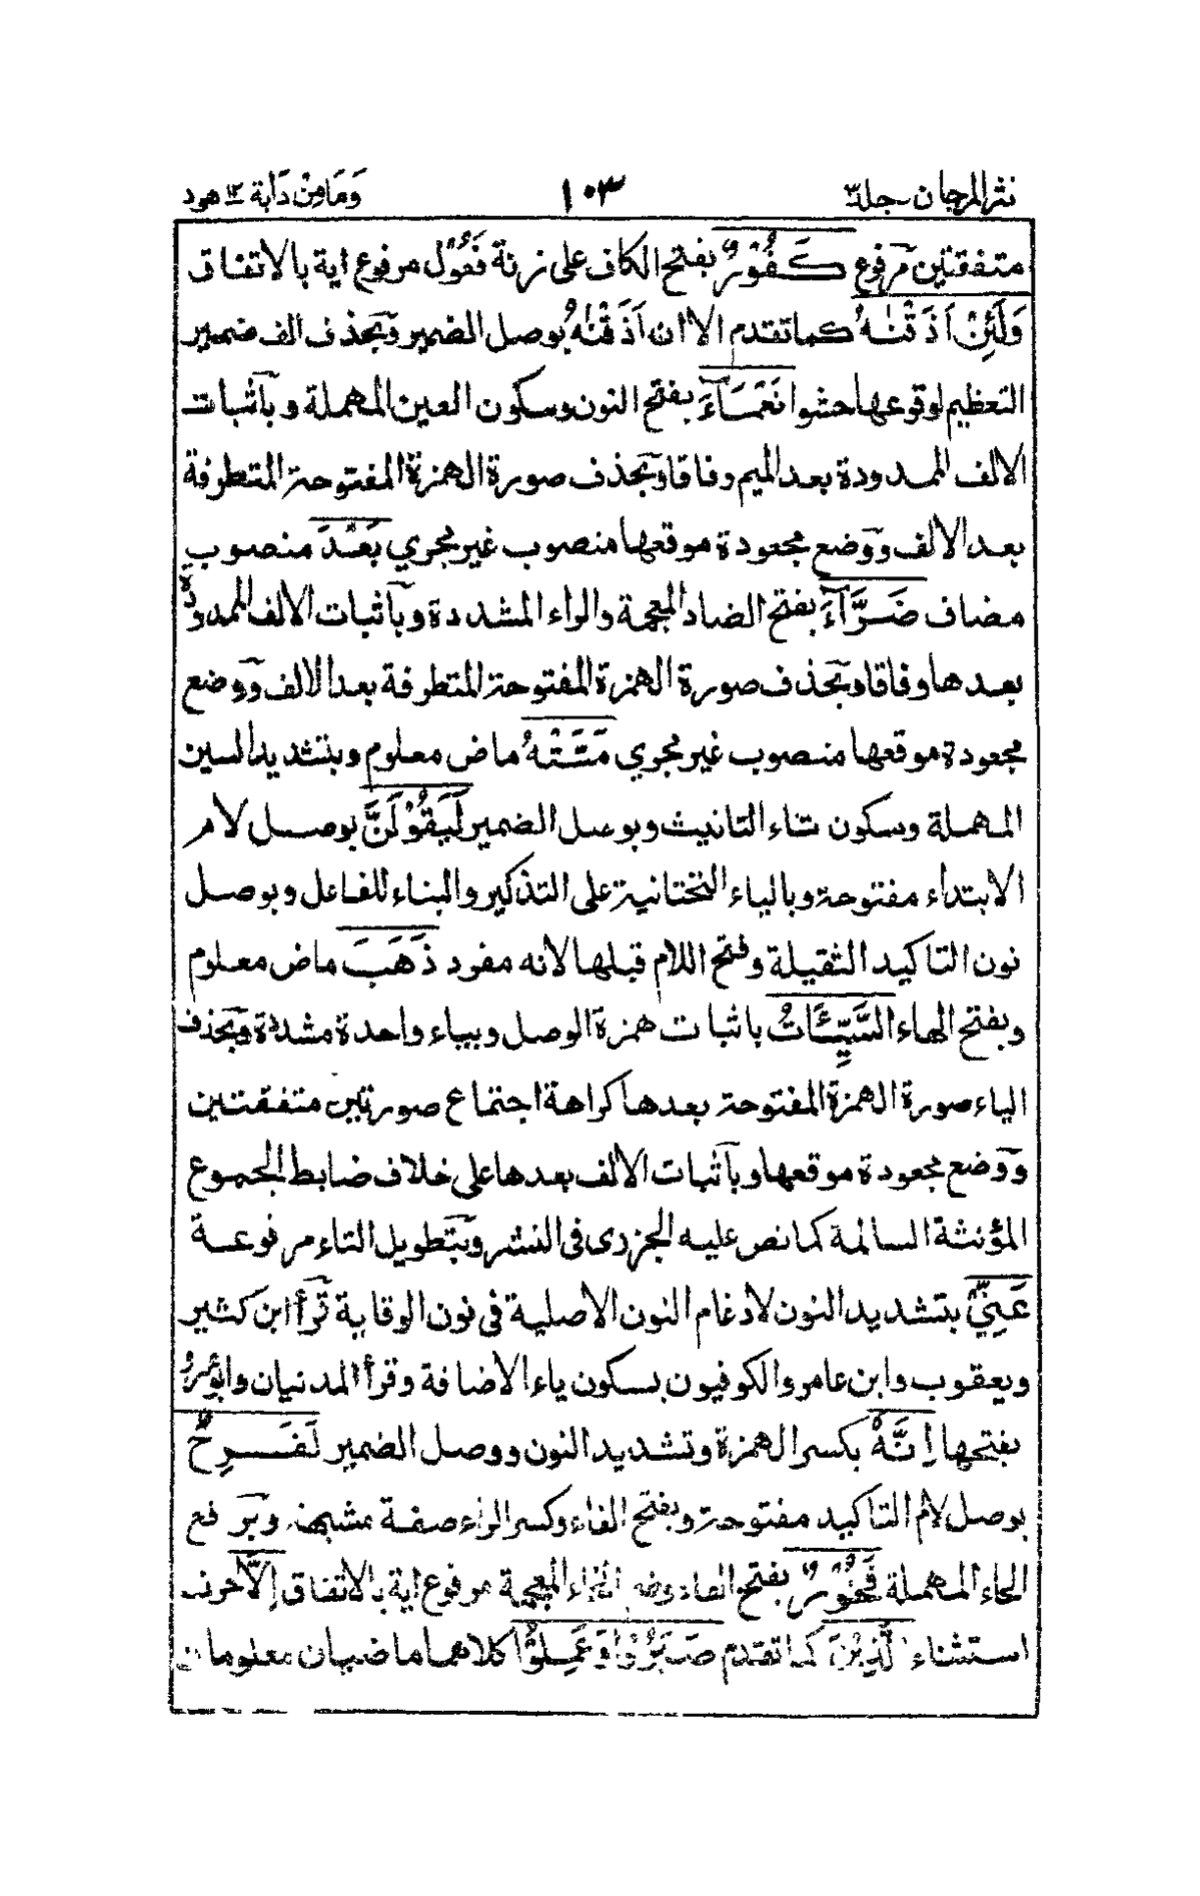 نثر المرجان ـ جلد ٣
١٠٣
وَمَا مِنْ دَابة ١٢ هود
متفقتين مرفوع كَفُوْرٌ بفتح الكاف على زنة فَعُوْل مرفوع اية بالاتفاق
وَلَئِنْ اَذَقْنٰهُ كما تقدم الا ان اَذَقْنٰهُ بوصل الضمير وبحذف الف ضمير
التعظيم لوقوعها حشوا نَعْمَآءَ بفتح النون وسكون العين المهملة وباثبات
الالف الممدودة بعد الميم وفاقا وبحذف صورة الهمزة المفتوحة المتطرفة
بعد الالف ووضع مجعودة موقعها منصوب غير مجري بَعْدَ منصوب
مضاف ضَرَّآءَ بفتح الضاد المعجمة والراء المشددة وباثبات الالف الممدودة
بعدها وفاقا وبحذف صورة الهمزة المفتوحة المتطرفة بعد الالف ووضع
مجعودة موقعها منصوب غير مجري مَسَّتْهُ ماض معلوم وبتشديد السين
المهملة وسكون تاء التانيث وبوصل الضمير لَيَقُوْلَنَّ بوصل لام
الابتداء مفتوحة وبالياء التحتانية على التذكير والبناء للفاعل وبوصل
نون التاكيد الثقيلة وفتح اللام قبلها لانه مفرد ذَهَبَ ماض معلوم
وبفتح الهاء السَّيِّئَاتُ باثبات همزة الوصل وبياء واحدة مشددة وبحذف
الياء صورة الهمزة المفتوحة بعدها كراهة اجتماع صورتين متفقتين
ووضع مجعودة موقعها وباثبات الالف بعدها على خلاف ضابط الجموع
المؤنثة السالمة كما نص عليه الجزرى فى النشر وبتطويل التاء مرفوعة
عَنِّيْ بتشديد النون لادغام النون الاصلية فى نون الوقاية قرأ ابن كثير
ويعقوب وابن عامر والكوفيون بسكون ياء الاضافة وقرأ المدنيان وابو عمرو
بفتحها اِنَّهٗ بكسر الهمزة وتشديد النون ووصل الضمير لَفَرِحٌ
بوصل لام التاكيد مفتوحة وبفتح الفاء وكسر الراء صفة مشبهة وبرفع
الحاء المهملة فَخُوْرٌ بفتح الفاء وضم الخاء المعجمة مرفوع اية بالاتفاق اِلَّا حرف
استثناء الَّذِيْنَ كما تقدم صَبَرُوْا وَعَمِلُوا كلاهما ماضيان معلومان